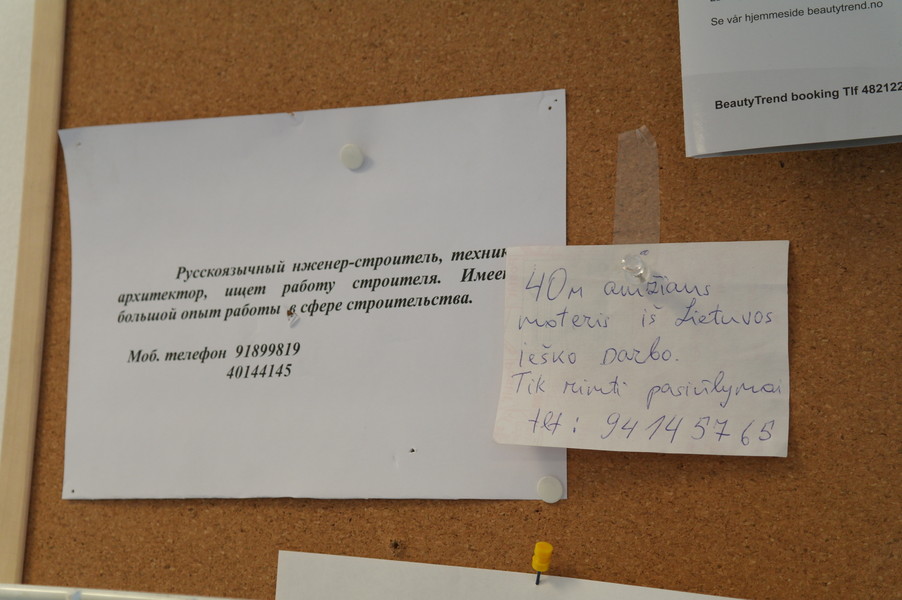 Se vår hjemmeside beautytrend.no
BeautyTrend booking Tlf 482122
Русскоязычный нженер-строитель, техник
архитектор, ищет работу строителя. Имее
большой опыт работы в сфере строительства.
Моб. телефон 91899819
40144145
40 м amžiaus
moteris iš Lietuvos
ieško darbo.
Tik rimti pasiūlymai
tlf: 94145765